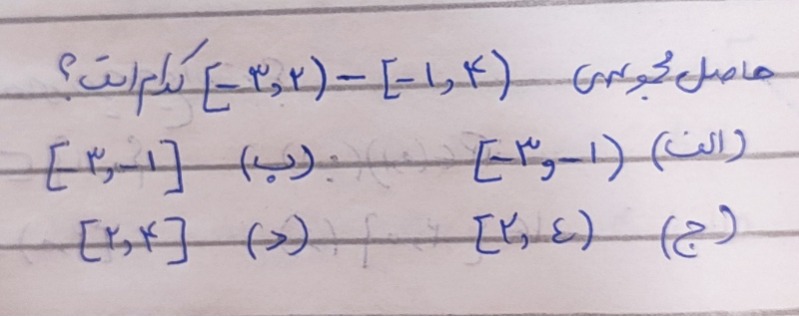 حاصل مجموعه‌ی [-۳,۲) - [-۱,۴) کدام است؟
الف) [-۳,-۱) ب) [-۳,-۱]
ج) [۲,٤) د) [۲,۴]